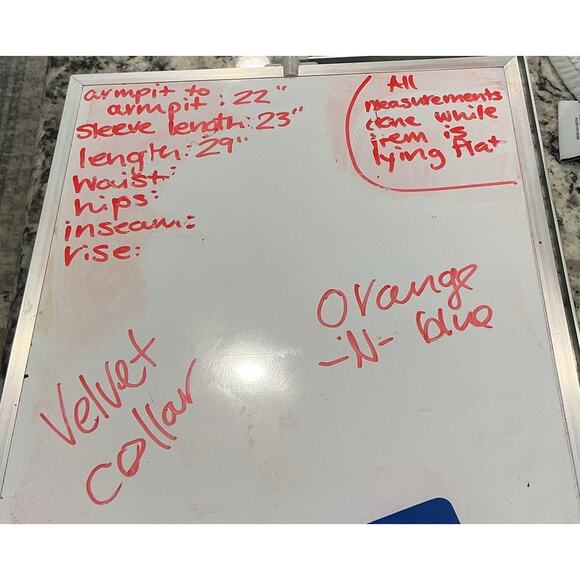 armpit to
armpit: 22"
sleeve length: 23"
length: 29"
waist:
hips:
inseam:
rise:
All
measurements
done while
item is
lying flat
orange
-iN- blue
Velvet
collar